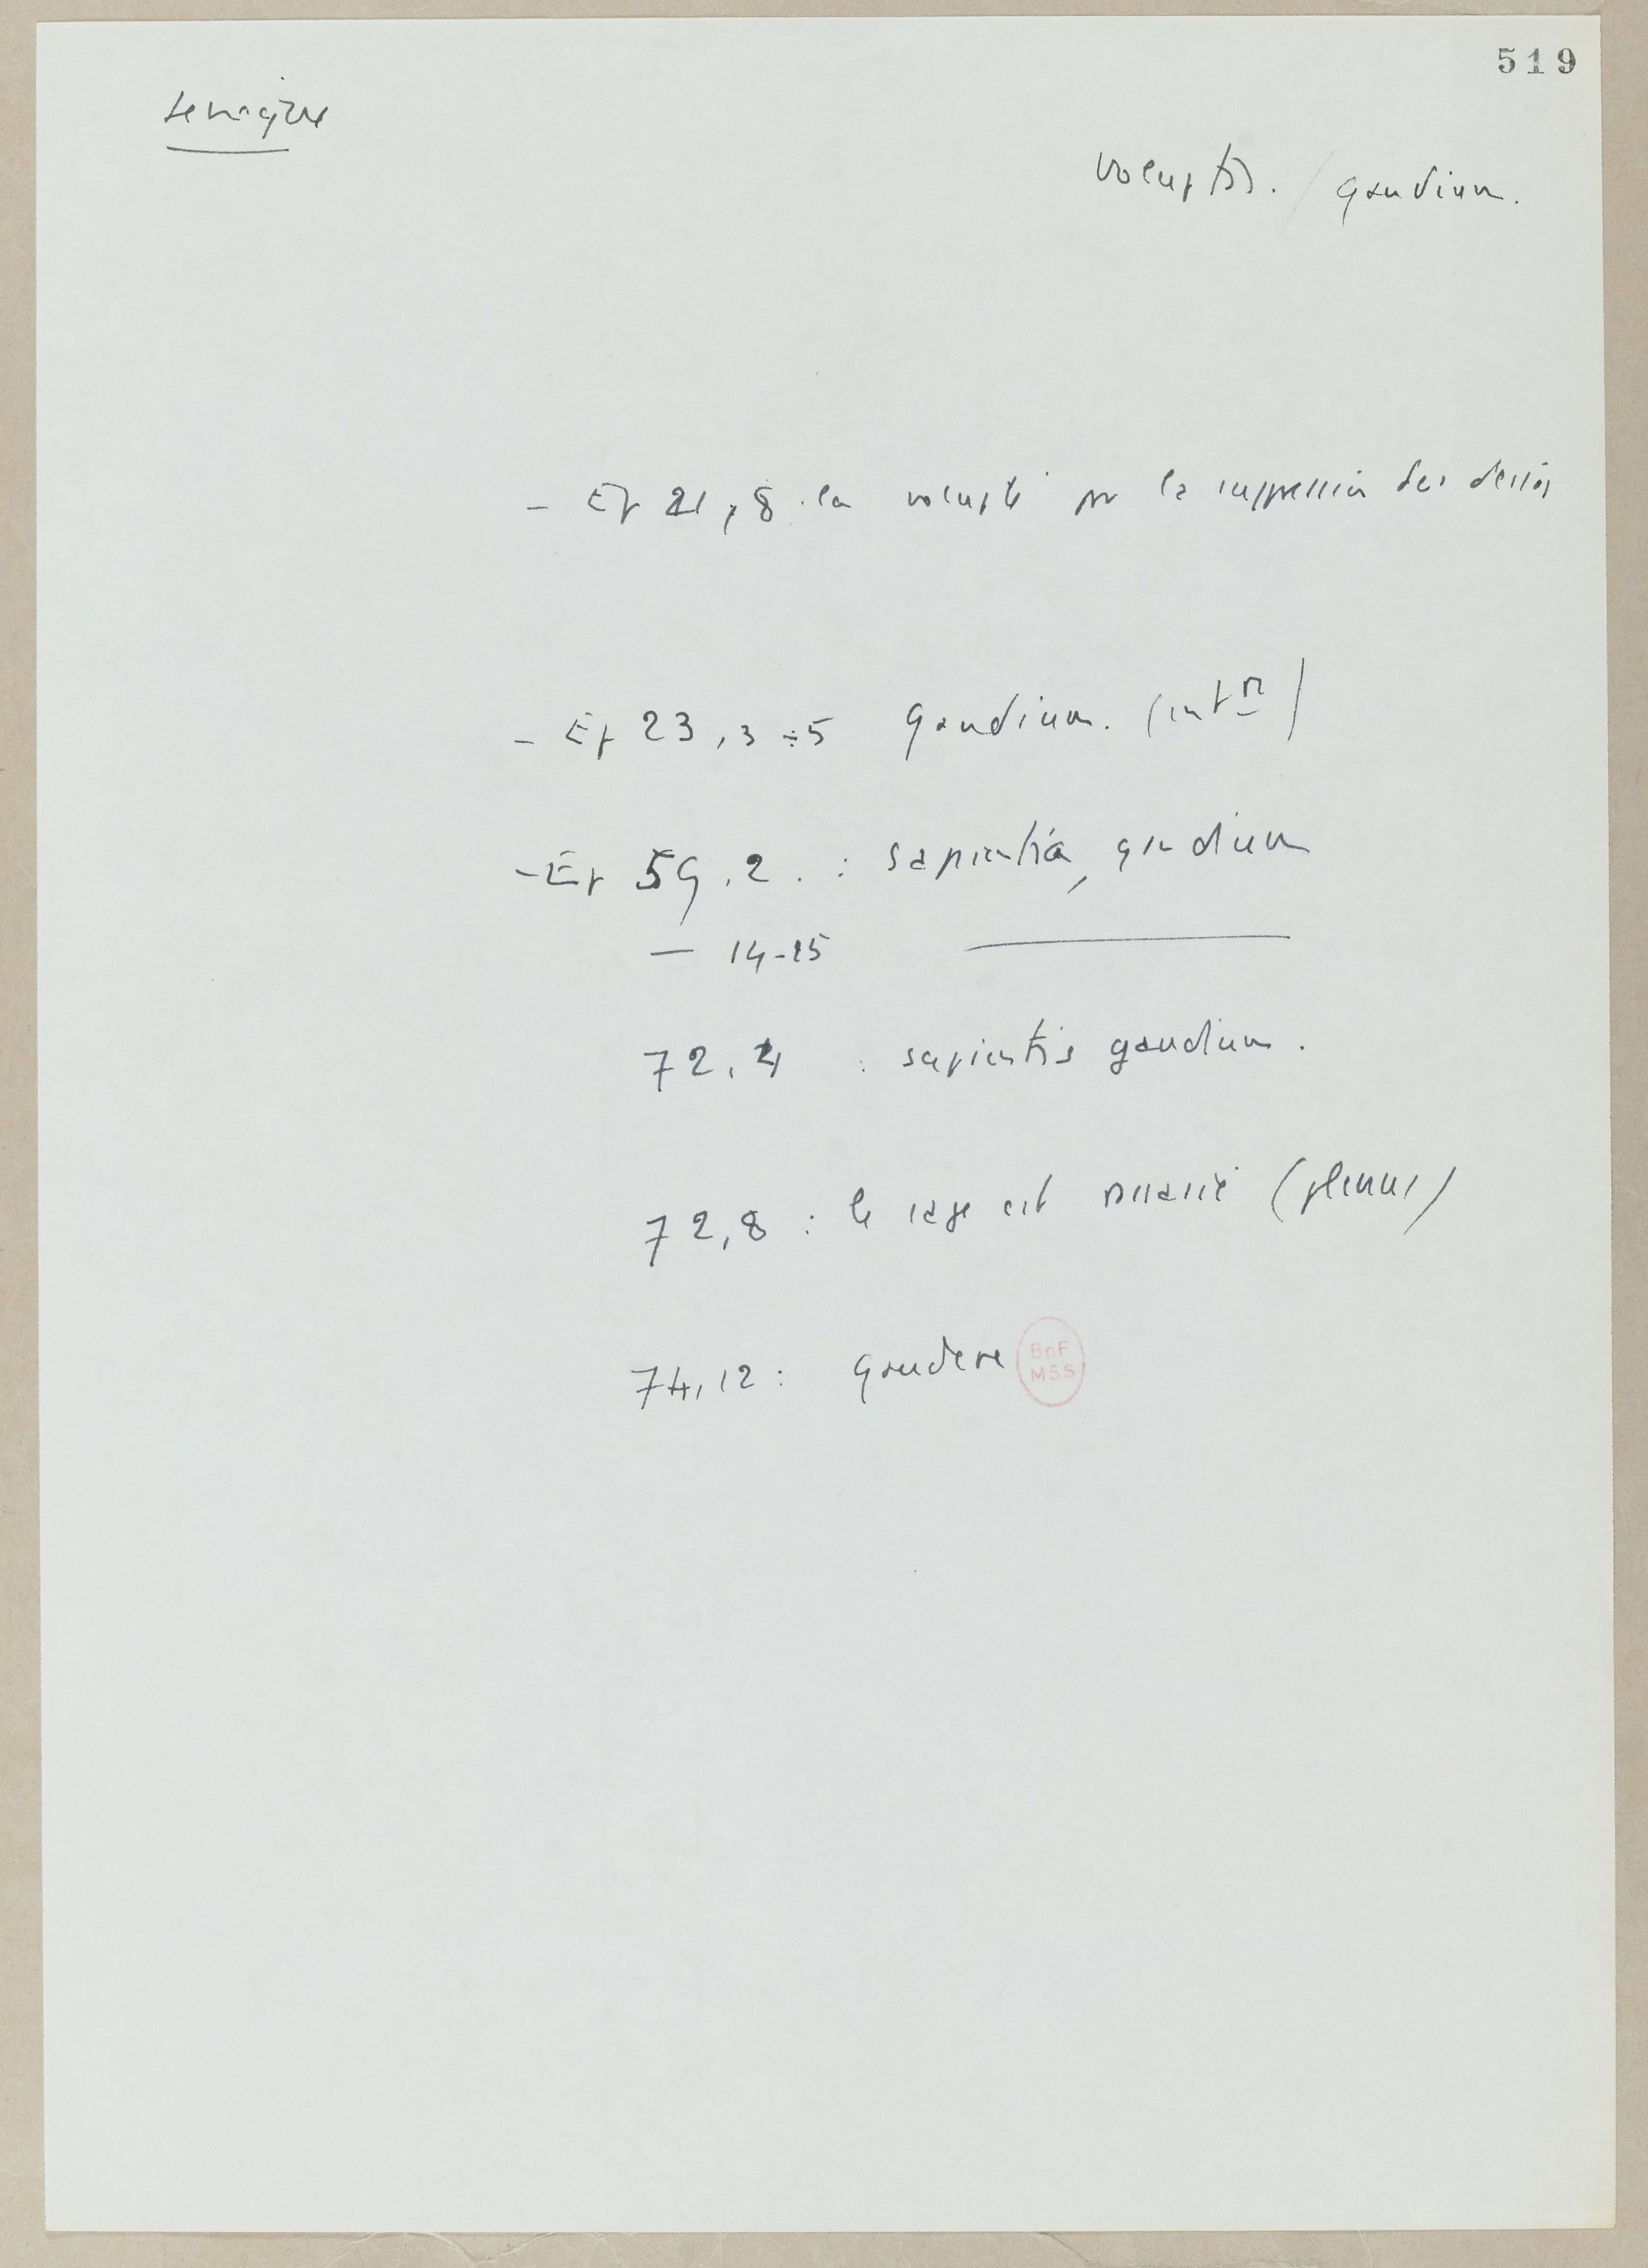 519
Sénèque
Voluptas. / gaudium.
- Ep 21, 8. la volupté par la suppression des désirs
- Ep 23, 3-5 gaudium. (int<sup>r</sup>)
- Ep 59.2. : sapientia, gaudium
— 14-15 ———
72.4 : sapientis gaudium.
72,8 : le sage est rassasié (plenus)
74,12 : gaudere
BnF
MSS